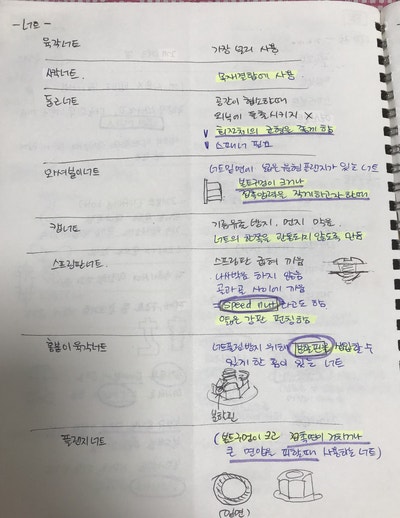 - 너트 -
육각너트 가장 널리 사용
사각너트. 목재결합에 사용
둥근너트 공간이 협소할때
외부에 돌출시키지 X
∨ 회전체의 균형을 좋게 함
∨ 스패너 필요
와셔붙이너트 너트밑면에 넓은 원형플랜지가 있는 너트
볼트구멍이 크거나
접촉압력을 작게하고자 할때
캡너트 기름유출 방지, 먼지
너트의 한쪽을 관통되지 않도록 만듦
스프링판너트. 스프링판 굽혀 끼움
나사박음 하지 않음
골과골 사이에 끼움
= Speed nut 라고도 함
얇은 강판 펀칭함
홈붙이육각너트 너트풀림방지 위해 분할핀을 삽입할 수
있게 한 홈이 있는 너트
분할핀
플랜지너트 (볼트구멍이 크고 접촉면이 거칠거나
큰 면압을 피할때 사용하는 너트)
(밑면)